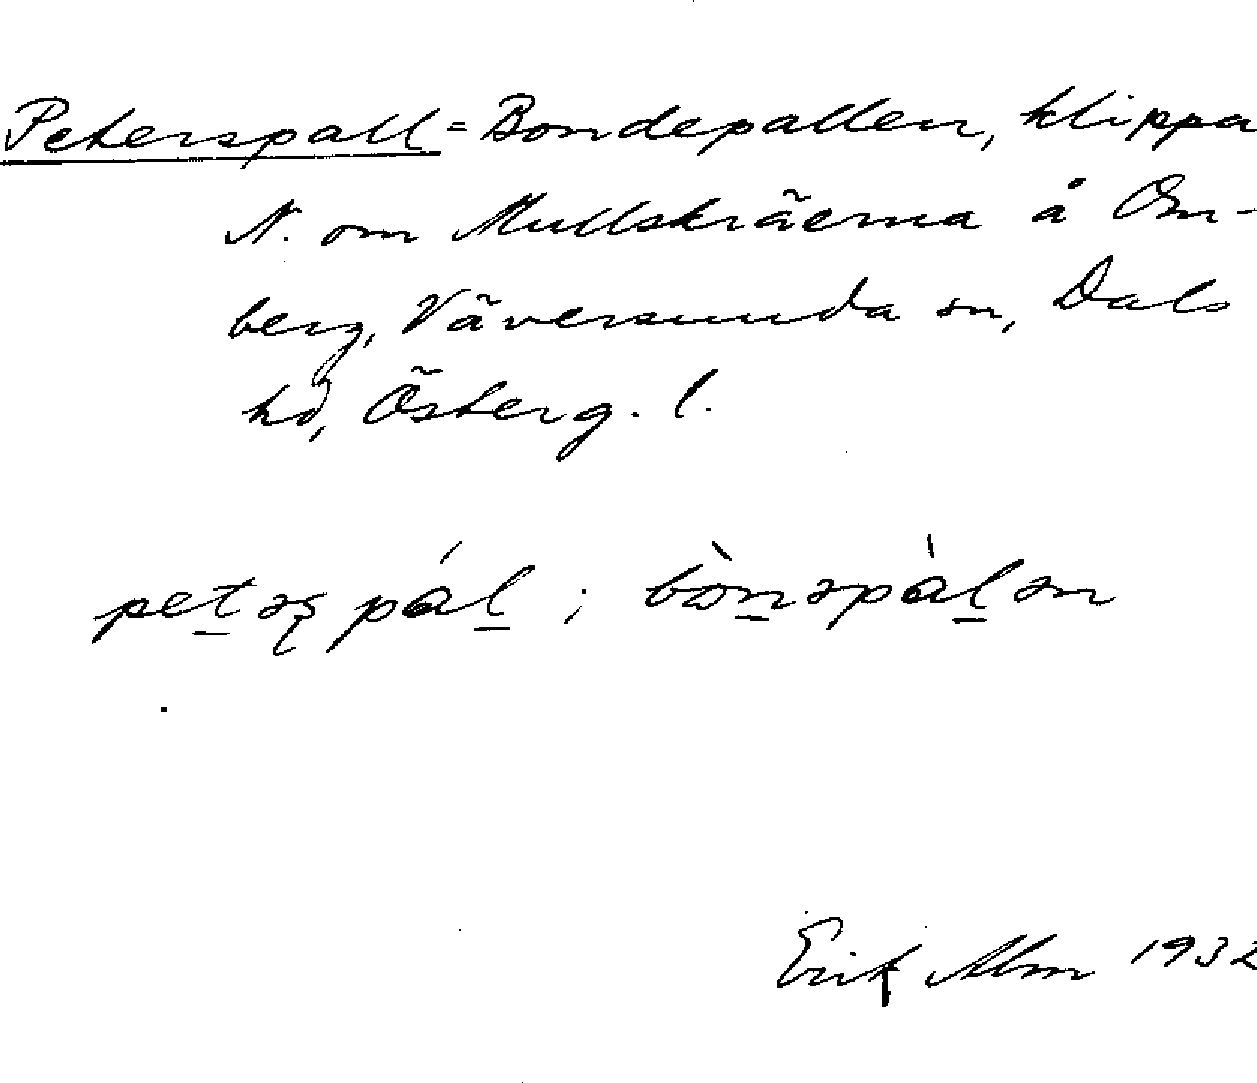 Peterspall = Bondepallen, klippa
N. om Mullskräerna å Om-
berg, Väversunda sn, Dals
hd, Österg. l.
petəʂpál ; bònəpàlən
Erik Alm 1932